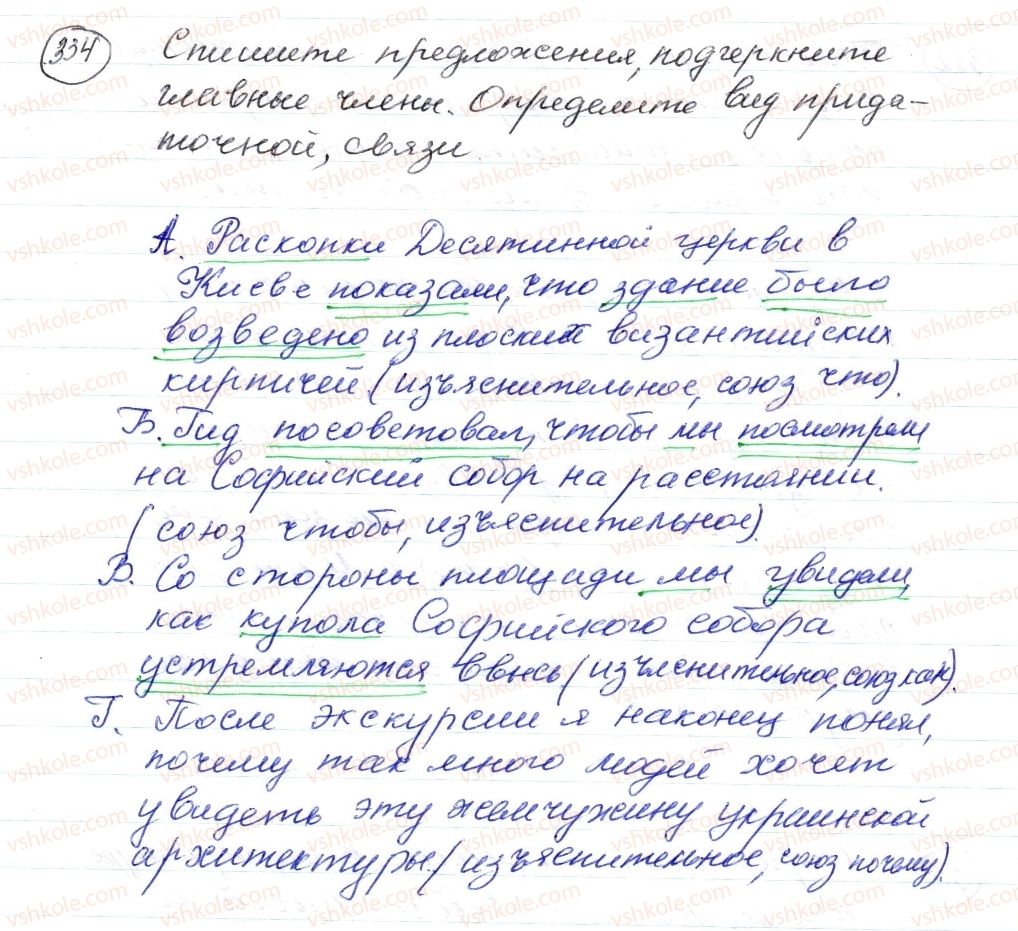 334 Спишите предложения, подчеркните
главные члены. Определите вид прида-
точной, связи.
А. Раскопки Десятинной церкви в
Киеве показали, что здание было
возведено из плоских византийских
кирпичей (изъяснительное, союз что).
Б. Гид посоветовал, чтобы мы посмотрели
на Софийский собор на расстоянии.
(союз чтобы, изъяснительное).
В. Со стороны площади мы увидели,
как купола Софийского собора
устремляются ввысь (изъяснительное, союз как).
Г. После экскурсии я наконец понял,
почему так много людей хочет
увидеть эту жемчужину украинской
архитектуры. (изъяснительное, союз почему).